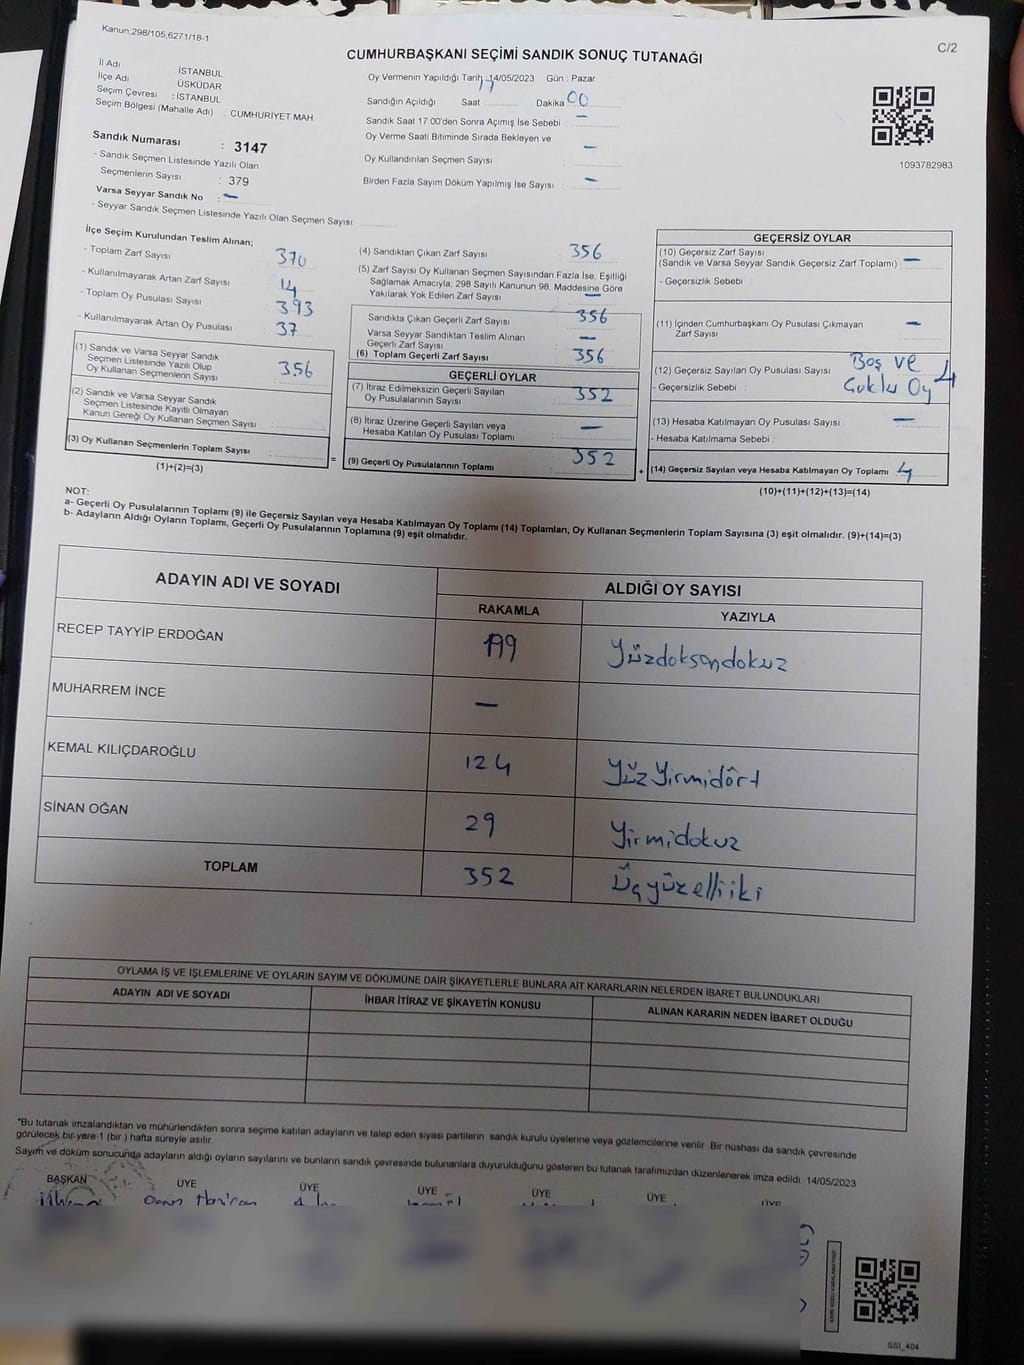 Kanun,298/105,6271/18-1
C/2
CUMHURBAŞKANI SEÇİMİ SANDIK SONUÇ TUTANAĞI
İl Adı İSTANBUL
İlçe Adı ÜSKÜDAR
Seçim Çevresi : İSTANBUL
Seçim Bölgesi (Mahalle Adı) : CUMHURİYET MAH.
Sandık Numarası : 3147
- Sandık Seçmen Listesinde Yazılı Olan
Seçmenlerin Sayısı : 379
Varsa Seyyar Sandık No : –
- Seyyar Sandık Seçmen Listesinde Yazılı Olan Seçmen Sayısı:
Oy Vermenin Yapıldığı Tarih : 14/05/2023 Gün : Pazar
Sandığın Açıldığı Saat 17 Dakika 00
Sandık Saat 17:00'den Sonra Açımış İse Sebebi : –
Oy Verme Saati Bitiminde Sırada Bekleyen ve
Oy Kullandırılan Seçmen Sayısı : –
Birden Fazla Sayım Döküm Yapılmış İse Sayısı : –
1093782983
İlçe Seçim Kurulundan Teslim Alınan;
- Toplam Zarf Sayısı : 370
- Kullanılmayarak Artan Zarf Sayısı : 14
- Toplam Oy Pusulası Sayısı : 393
- Kullanılmayarak Artan Oy Pusulası : 37
(1) Sandık ve Varsa Seyyar Sandık
Seçmen Listesinde Yazılı Olup
Oy Kullanan Seçmenlerin Sayısı : 356
(2) Sandık ve Varsa Seyyar Sandık
Seçmen Listesinde Kayıtlı Olmayan
Kanun Gereği Oy Kullanan Seçmen Sayısı :
(3) Oy Kullanan Seçmenlerin Toplam Sayısı :
(1)+(2)=(3)
(4) Sandıktan Çıkan Zarf Sayısı : 356
(5) Zarf Sayısı Oy Kullanan Seçmen Sayısından Fazla İse, Eşitliği
Sağlamak Amacıyla, 298 Sayılı Kanunun 98. Maddesine Göre
Yakılarak Yok Edilen Zarf Sayısı : –
Sandıkta Çıkan Geçerli Zarf Sayısı : 356
Varsa Seyyar Sandıktan Teslim Alınan
Geçerli Zarf Sayısı : –
(6) Toplam Geçerli Zarf Sayısı : 356
GEÇERLİ OYLAR
(7) İtiraz Edilmeksizin Geçerli Sayılan
Oy Pusulalarının Sayısı : 352
(8) İtiraz Üzerine Geçerli Sayılan veya
Hesaba Katılan Oy Pusulası Toplamı : –
= (9) Geçerli Oy Pusulalarının Toplamı : 352 +
GEÇERSİZ OYLAR
(10) Geçersiz Zarf Sayısı
(Sandık ve Varsa Seyyar Sandık Geçersiz Zarf Toplamı) : –
- Geçersizlik Sebebi :
(11) İçinden Cumhurbaşkanı Oy Pusulası Çıkmayan
Zarf Sayısı : –
(12) Geçersiz Sayılan Oy Pusulası Sayısı : 4
- Geçersizlik Sebebi : Boş ve
Çoklu Oy
(13) Hesaba Katılmayan Oy Pusulası Sayısı : –
- Hesaba Katılmama Sebebi :
(14) Geçersiz Sayılan veya Hesaba Katılmayan Oy Toplamı : 4
(10)+(11)+(12)+(13)=(14)
NOT:
a- Geçerli Oy Pusulalarının Toplamı (9) ile Geçersiz Sayılan veya Hesaba Katılmayan Oy Toplamı (14) Toplamları, Oy Kullanan Seçmenlerin Toplam Sayısına (3) eşit olmalıdır. (9)+(14)=(3)
b- Adayların Aldığı Oyların Toplamı, Geçerli Oy Pusulalarının Toplamına (9) eşit olmalıdır.
ADAYIN ADI VE SOYADI ALDIĞI OY SAYISI
RAKAMLA YAZIYLA
RECEP TAYYİP ERDOĞAN 199 Yüzdoksandokuz
MUHARREM İNCE –
KEMAL KILIÇDAROĞLU 124 YüzYirmidört
SİNAN OĞAN 29 Yirmidokuz
TOPLAM 352 Üçyüzelliiki
OYLAMA İŞ VE İŞLEMLERİNE VE OYLARIN SAYIM VE DÖKÜMÜNE DAİR ŞİKAYETLERLE BUNLARA AİT KARARLARIN NELERDEN İBARET BULUNDUKLARI
ADAYIN ADI VE SOYADI İHBAR İTİRAZ VE ŞİKAYETİN KONUSU ALINAN KARARIN NEDEN İBARET OLDUĞU
"Bu tutanak imzalandıktan ve mühürlendikten sonra seçime katılan adayların ve talep eden siyasi partilerin sandık kurulu üyelerine veya gözlemcilerine verilir. Bir nüshası da sandık çevresinde
görülecek bir yere 1 (bir ) hafta süreyle asılır.
Sayım ve döküm sonucunda adayların aldığı oyların sayılarını ve bunların sandık çevresinde bulunanlara duyurulduğunu gösteren bu tutanak tarafımızdan düzenlenerek imza edildi. 14/05/2023
BAŞKAN ÜYE ÜYE ÜYE ÜYE ÜYE ÜYE
SSI_404